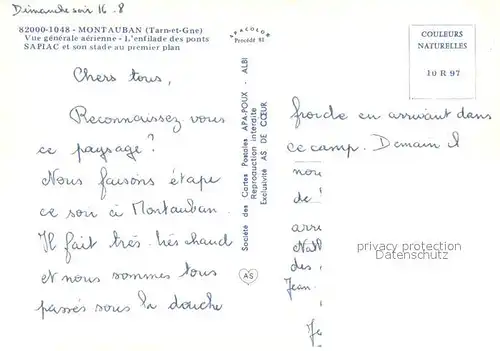 Dimanche soir 16.8
82000-1048 - MONTAUBAN (Tarn-et-Gne)
Vue générale aérienne - L'enfilade des ponts
SAPIAC et son stade au premier plan
Chers tous,
Reconnaissez vous
ce paysage?
Nous faisons étape
ce soir à Montauban.
Il fait très très chaud
et nous sommes tous
passés sous la douche
APACOLOR
Procédé 81
Société des Cartes Postales APA-POUX - ALBI
Reproduction interdite
Exclusivité AS DE CŒUR
AS
COULEURS
NATURELLES
10 R 97
froide en arrivant dans
ce camp. Demain
nou
de
arri
Nath
des
Jean-
privacy protection
Datenschutz